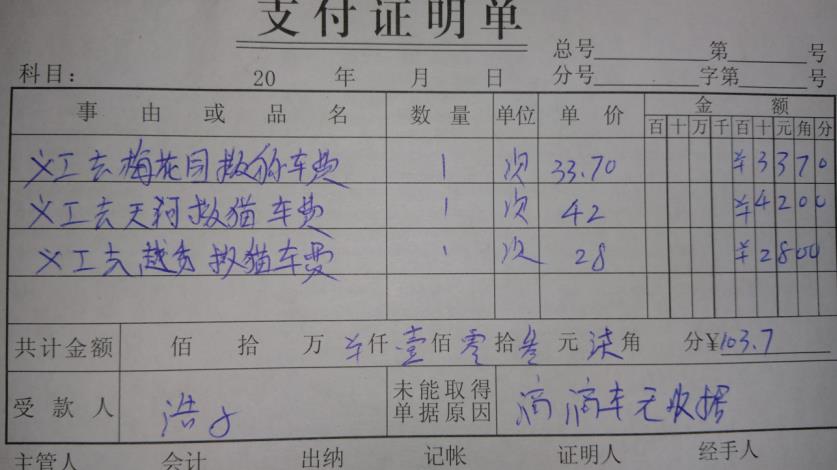 支付证明单
总号 第 号
科目: 20 年 月 日 分号 字第 号
事由或品名 数量 单位 单价 金额
百十万千百十元角分
义工去梅花园救猫车费 1 次 33.70 ¥3370
义工去天河救猫车费 1 次 42 ¥4200
义工去越秀救猫车费 1 次 28 ¥2800
共计金额 佰 拾 万 ¥仟壹佰零拾叁元柒角 分¥103.7
受款人 浩子 未能取得单据原因 滴滴车无收据
主管人 会计 出纳 记帐 证明人 经手人